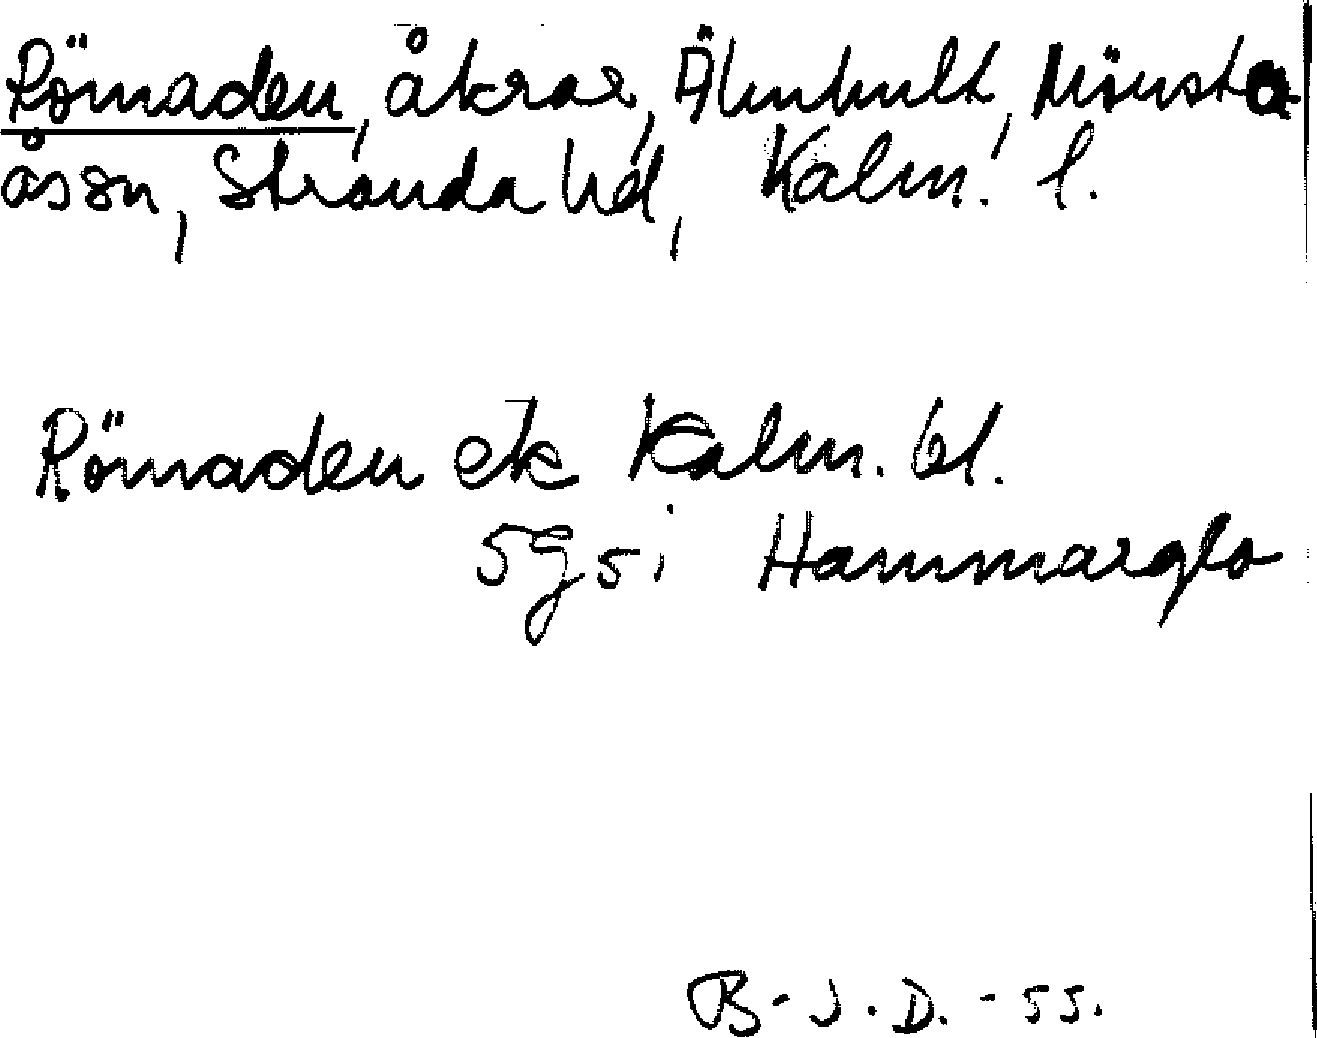 Römaden, åkrar, Älmhult, Mönsterå
åssn, Stranda hd, Kalm. l.
Römaden ek Kalm. bl.
5g5i Hammarglo
B-J.D.-55.